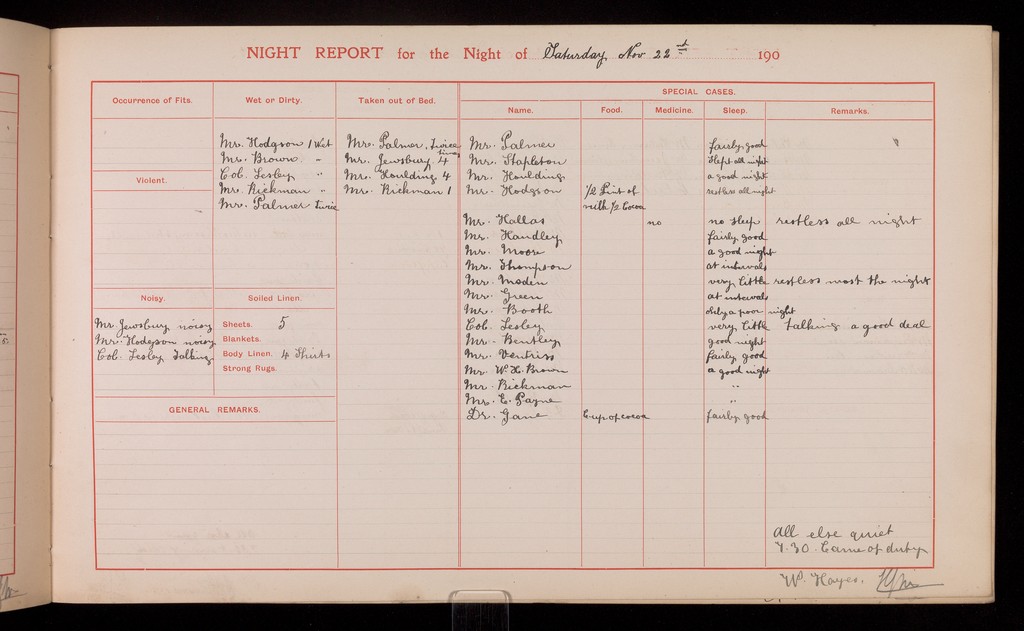 NIGHT REPORT for the Night of Saturday Nov 22nd 190
Occurrence of Fits.
Violent.
Noisy.
Mr Jewsbury noisy
Mr. Hodgson noisy
Col. Lesley Talking
Wet or Dirty.
Mr. Hodgson 1 Wet
Mr. Brown "
Col. Lesley "
Mr. Rickman "
Mr. Palmer twice
Soiled Linen.
Sheets. 5
Blankets.
Body Linen. 4 Shirts
Strong Rugs.
GENERAL REMARKS.
Taken out of Bed.
Mr. Palmer, twice
Mr. Jewsbury 4 times
Mr. Houlding 4
Mr. Rickman 1
SPECIAL CASES.
Name. Food. Medicine. Sleep. Remarks.
Mr. Palmer fairly good
Mr. Stapleton slept all night
Mr. Houlding a good night
Mr. Hodgson 1/2 Pint of restless all night
milk 1/2 Cocoa
Mr. Hallas no no sleep restless all night
Mr. Handley fairly good
Mr. Moore a good night
Mr. Thompson at intervals
Mr. Moden very little restless most the night
Mr. Green at intervals
Mr. Booth a poor night
Col. Lesley very little talking a good deal
Mr. Bentley good night
Mr. Ventriss fairly good
Mr. W. H. Brown a good night
Mr. Rickman "
Mr. E. Payne "
Dr. Jane Cup of cocoa fairly good
all else quiet
7.30 Came of duty
W. Hayes.